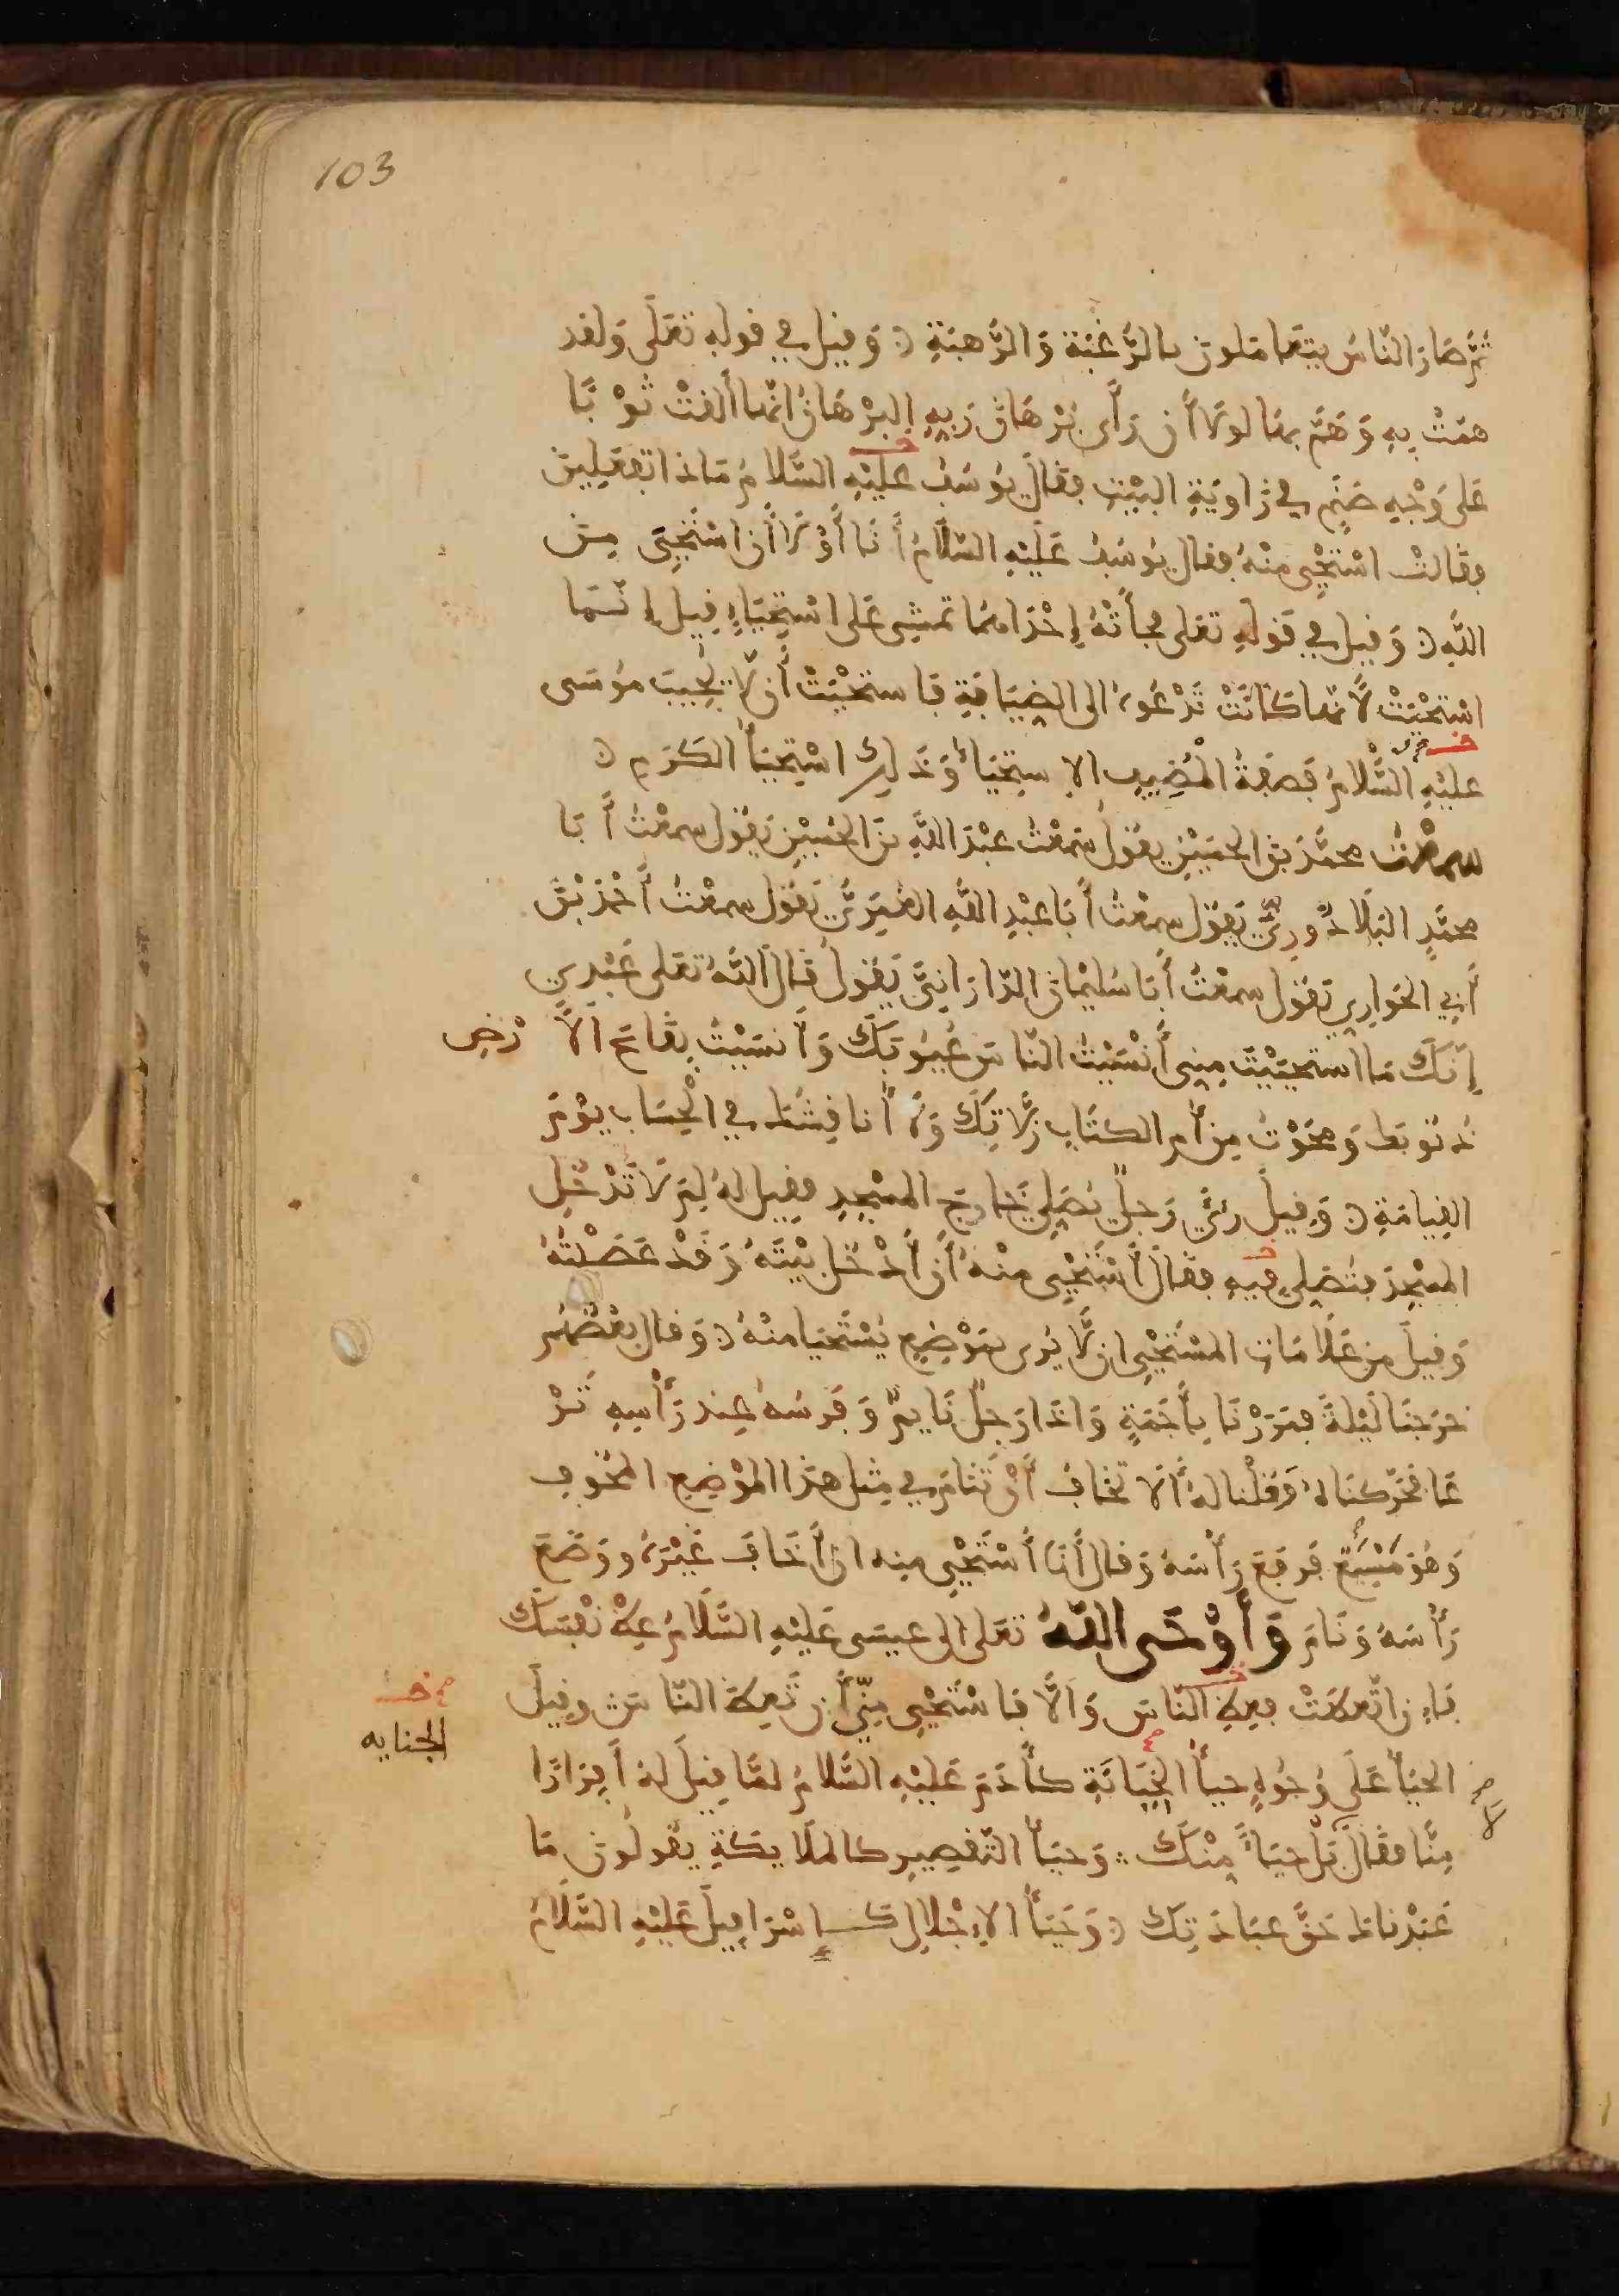 103
ثُمَّ صَارَ النَّاسُ يَتَعَامَلُونَ بِالرَّغْبَة وَالرَّهبَةِ وَقِيلَ في قولِهِ تَعَلَى وَلقد
همّتْ بِهِ وَهَمَّ بِهَا لولَا أَن رَأَى بُرْهَانَ رَبِّهِ البُرْهَانُ انّهَا ألقتْ ثَوْبًا
عَلى وَجْهِ صَنَمٍ في زَاوِيَةِ البَيْتِ فقَالَ يُوسُفُ عَلَيْهِ السَّلامُ مَاذا تَفعَلِينَ
فقَالتْ اسْتَحْيِي مِنْهُ فقال يُوسُفُ عَلَيْهِ السَّلَامُ أَنَا أَوْلَا أَن اسْتَحْيِيَ مِنَ
اللَّهِ وَقيل في قَولِهِ تعَلى فجَأَتْهُ إِحْدَاهُمَا تمشِى عَلى اسْتِحْيَاءٍ قِيل إِنَّمَا
اسْتَحْيَتْ لأَنّهَا كَانَتْ تَدْعُوهُ الى الضِيَافَةِ فَاستَحْيَتْ أَن لَا يُجِيبَ مُوسَى
عَلَيْهِ السَّلَامُ فَصِفَةُ المُضِيفِ الاستِحْيَأُ وَذَلِكَ اسْتِحْيَأُ الكَرَمِ
سمعْتُ محمَّدَ بنَ الحُسَيْنِ يقُولُ سَمِعْتُ عَبْدَ اللَّهِ بنَ الحُسَيْنِ يَقُول سمعْتُ أَبَا
محمَّدٍ البَلَاذُورِيَّ يَقُول سمعْتُ أَبَا عبْدِ اللَّهِ العُمَرِيَّ يَقُول سمعْتُ أَحْمَدَ بْنَ
أَبِي الحَوارِي يَقُول سمعْتُ أَبَا سُلَيْمَانَ الدَّارَانِيَّ يَقُولُ قَالَ اللَّهُ تعَلى عَبْدِي
إِنَّكَ مَا اسْتَحْيَيْتَ مِنِي أَنْسَيْتُ النَّاسَ عُيُوبَكَ وَأَنسَيْتُ بِقَاعَ الأَرْضِ
ذنوبَك وَمحَوْتُ مِن أُمِّ الكتَابِ زَلَّاتِكَ وَلَا أُنَاقِشُكَ في الْحِسَابِ يَوْمَ
القِيَامَةِ وَقِيلَ رُئِيَ رَجلٌ يُصَلِّي خَارِجَ المسْجِدِ فقِيل لهُ لِمَ لَا تَدْخُل
المسْجِدَ فتُصَلِّي فِيهِ فقَالَ أَسْتَحْيِي مِنْهُ أَن أَدْخُلَ بَيْتَهُ وَقَدْ عَصَيْتُهُ
وَقِيلَ مِن عَلَامَاتِ المسْتَحْيِي ان لَّا يُرى بمَوْضِعٍ يُسْتَحْيَا مِنْهُ وَقال بَعْضُهُم
خرَجنَا لَيْلَةً فمَرَرْنَا بِأَجَمَةٍ وَاذَا رَجلٌ نَايِمٌ وَفَرَسُهُ عِند رَأْسِهِ تَرْ
عَا فَحَرَّكنَاهُ وَقُلْنا لهُ أَلَا تخَافُ أَنْ تَنَامَ في مِثل هَذَا المَوْضِعِ المَخُوفِ
وَهُوَ مُسْبِعٌ فرفعَ رَأْسَهُ وَقال أَنَا أَسْتَحْيِي مِنه ان أَخَافَ غَيْرَهُ ووَضَعَ
رَأْسَهُ وَنَامَ وَأَوْحَى اللَّهُ تعَلى الى عِيسَى عَلَيْهِ السَّلَامُ عِظْ نَفْسَكَ
فَإِنِ اتَّعَظَتْ فَعِظِ النَّاسَ وَالَّا فَاسْتَحْيِي مِنِّي أَن تَعِظَ النَّاسَ وقِيلَ
الحَيَأُ عَلَى وُجُوهٍ حيَأُ الخِيَانَةِ كأَدَمَ عَلَيْهِ السَّلامُ لمَّا قِيلَ لهُ أَفِرَارًا
الجنايه
مِنَّا فقَالَ بَل حَيَأً مِنْكَ وَحَيَأُ التَّقصِيرِ كالمَلَايِكَةِ يَقُولُونَ مَا
عَبَدْنَاكَ حَقَّ عِبَادَتِكَ وَحَيَأُ الاِجْلَالِ كَإِسْرَافِيلَ عَلَيْهِ السَّلَامُ